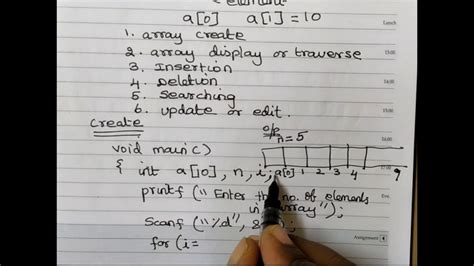 element
a[0] a[1] = 10
1. array create
2. array display or traverse
3. Insertion
4. Deletion
5. Searching
6. update or edit.
Create
o/p
n=5
void main()
{ int a[0], n, i; a[0] 1 2 3 4 9
printf ("Enter the no. of elements
in array");
Scanf ("%d",
for (i=
Lunch
13:00
14:00
15:00
16:00
17:00
Assignment